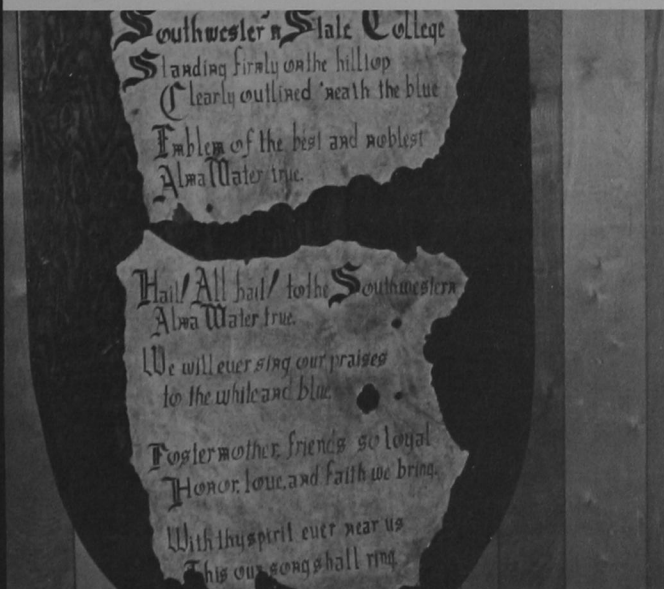 Southwestern State College
Standing firmly on the hilltop
Clearly outlined 'neath the blue
Emblem of the best and noblest
Alma Mater true.
Hail! All hail! to the Southwestern
Alma Mater true.
We will ever sing our praises
to the white and blue.
Foster mother, friends so loyal
Honor, love, and faith we bring.
With thy spirit ever near us
This our song shall ring